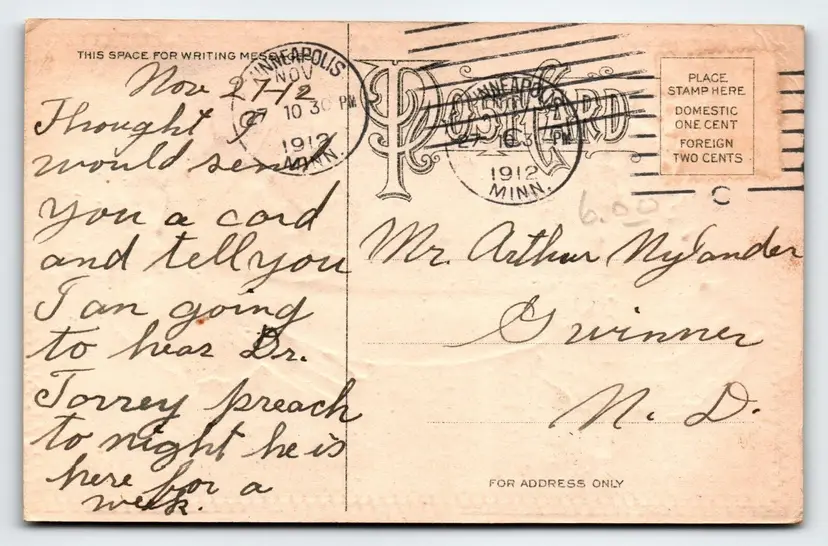 THIS SPACE FOR WRITING MESSAGE
Nov 27-12
Thought I
would send
you a card
and tell you
I an going
to hear Dr.
Torrey preach
to night he is
here for a
week.
MINNEAPOLIS
NOV
27 10 30 PM
1912
MINN.
POST CARD
MINNEAPOLIS
27 10 30 PM
1912
MINN.
PLACE
STAMP HERE
DOMESTIC
ONE CENT
FOREIGN
TWO CENTS
C
6.00
Mr. Arthur Nylander
Gwinner
N. D.
FOR ADDRESS ONLY